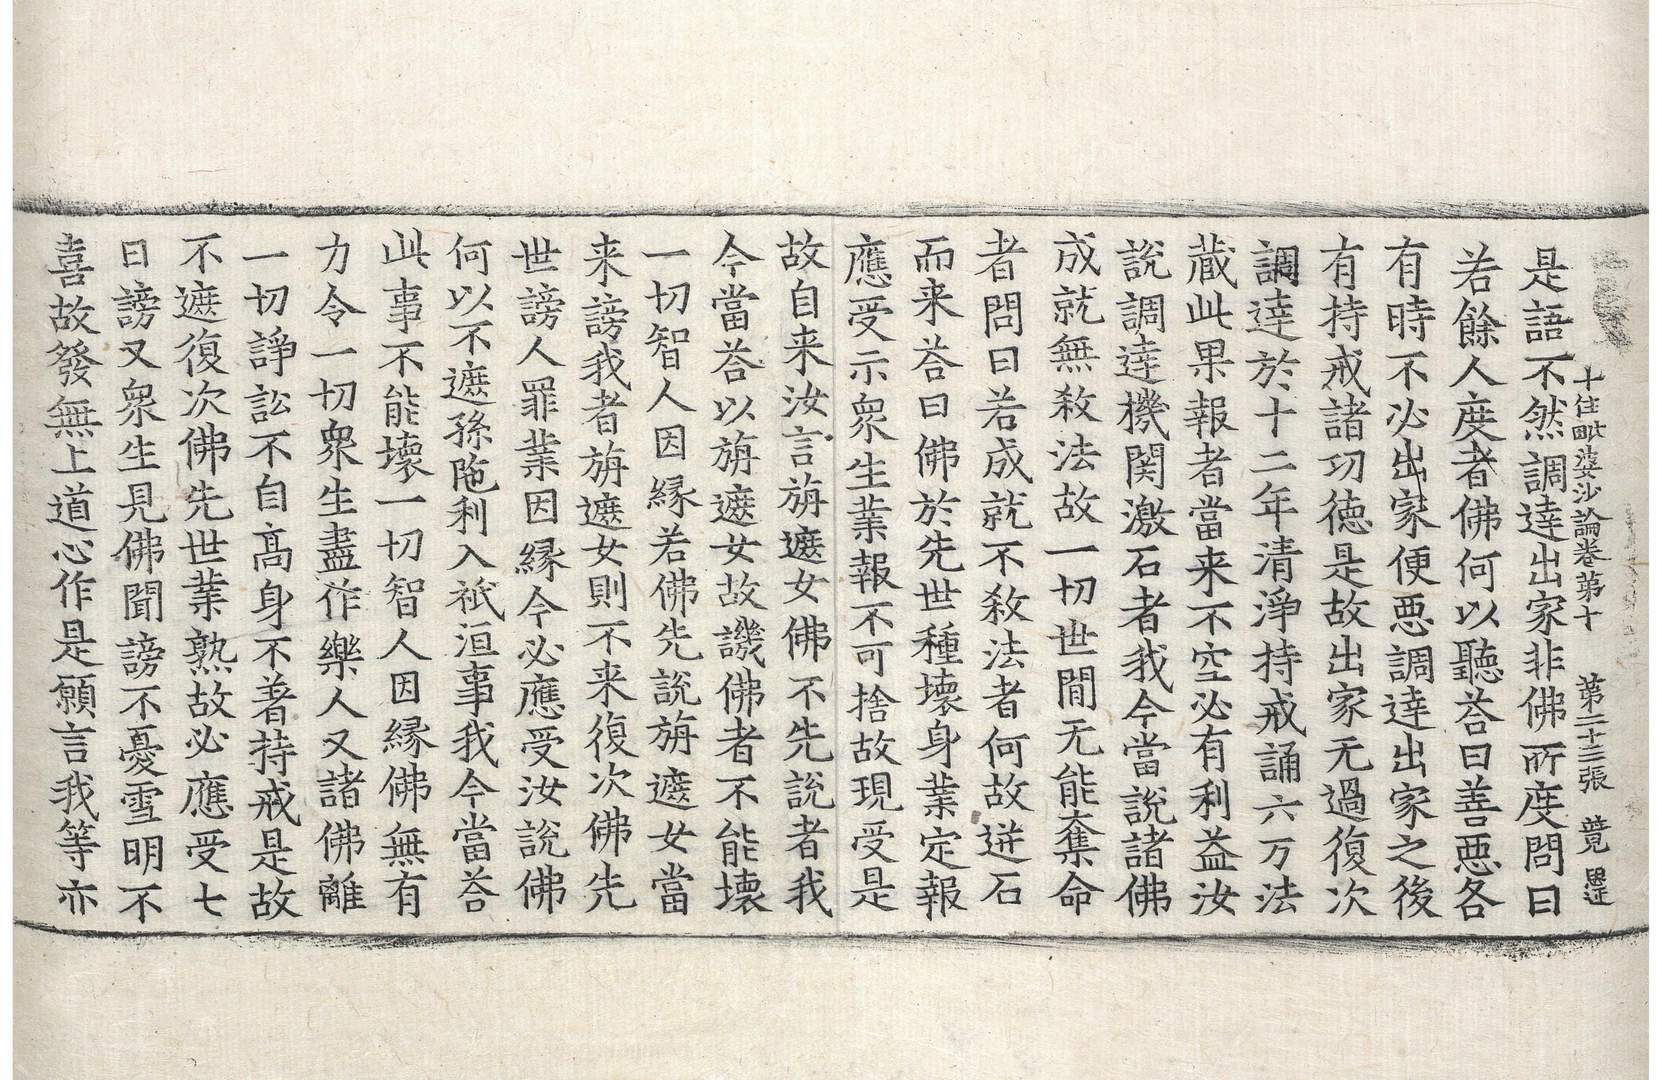 十住毗婆沙論卷第十 第二十三張 竟
是語不然調達出家非佛所度問曰
若餘人度者佛何以聽荅曰善惡各
有時不必出家便惡調達出家之後
有持戒諸功徳是故出家无過復次
調達於十二年清淨持戒誦六万法
藏此果報者當来不空必有利益汝
說調達機関激石者我今當說諸佛
成就無殺法故一切世閒无能奪命
者問曰若成就不殺法者何故迸石
而来荅曰佛於先世種壞身業定報
應受示衆生業報不可捨故現受是
故自来汝言旃遮女佛不先說者我
今當荅以旃遮女故譏佛者不能壞
一切智人因縁若佛先說旃遮女當
来謗我者旃遮女則不来復次佛先
世謗人罪業因縁今必應受汝說佛
何以不遮孫陁利入祇洹事我今當荅
此事不能壞一切智人因縁佛無有
力令一切衆生盡作樂人又諸佛離
一切諍訟不自髙身不著持戒是故
不遮復次佛先世業熟故必應受七
日謗又衆生見佛聞謗不憂雪明不
喜故發無上道心作是願言我等亦